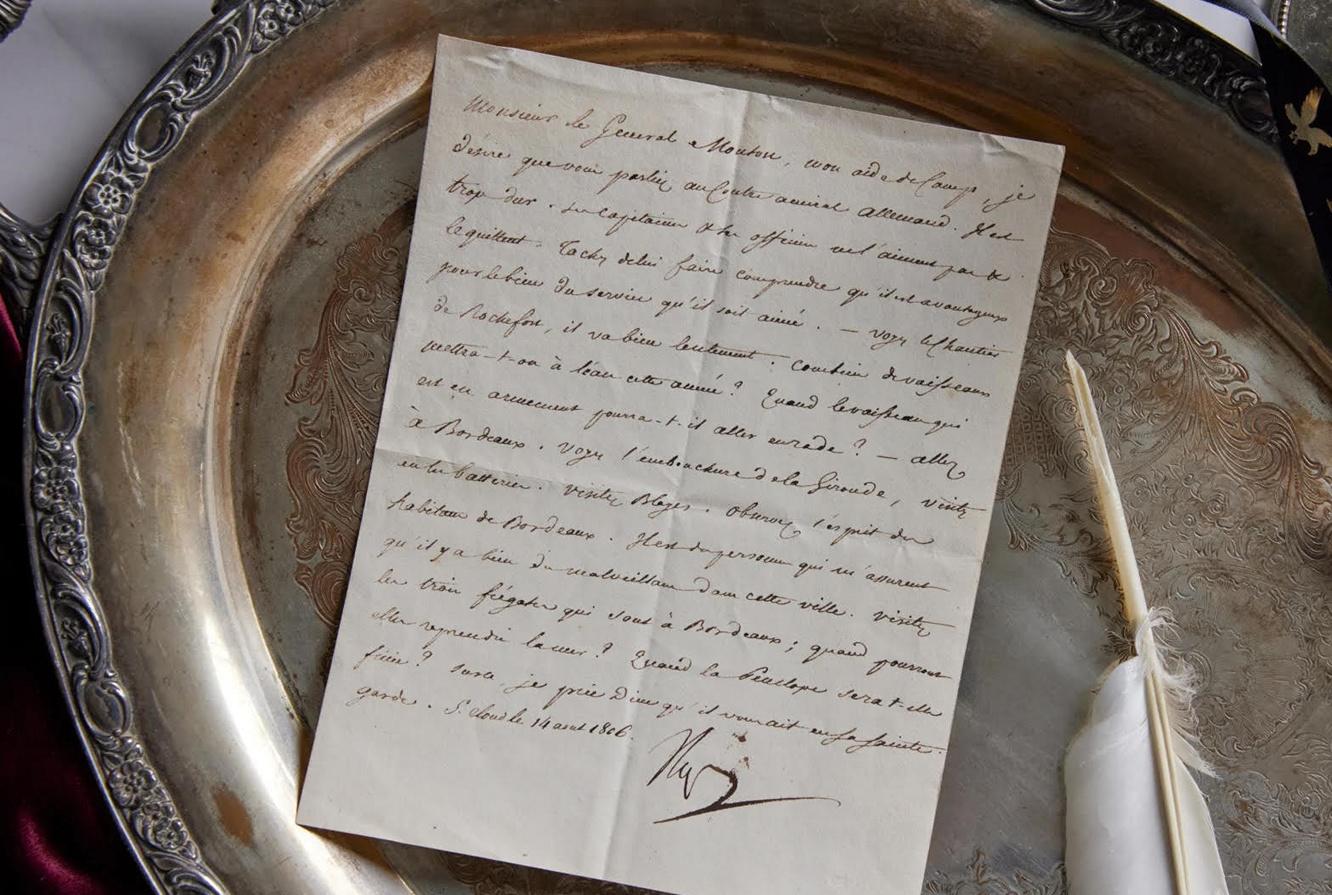 Monsieur le General Mouton, mon aide de Camp, je
désire que vous parliez au Contre amiral allemand. Il est
trop dur. Ses Capitaines & ses officiers ne l'aiment pas &
le quittent. Tachez de lui faire comprendre qu'il est avantageux
pour le bien du service qu'il soit aimé. — Voyez les chantiers
de Rochefort, il va bien lentement. Combien de vaisseaux
mettra-t-on à l'eau cette année? Quand le vaisseau qui
est en armement pourra-t-il aller en rade? — allez
à Bordeaux. Voyez l'embouchure de la Gironde, visitez
en les batteries. Visitez Blayes. Observez l'esprit des
habitans de Bordeaux. Il est des personnes qui m'assurent
qu'il y a bien des malveillans dans cette ville. Visitez
les trois frégates qui sont à Bordeaux; quand pourront
elles reprendre la mer? Quand la Pénélope sera-t-elle
finie? Sur ce, je prie Dieu qu'il vous ait en sa sainte
garde. St. Cloud le 14 aout 1806
Nap